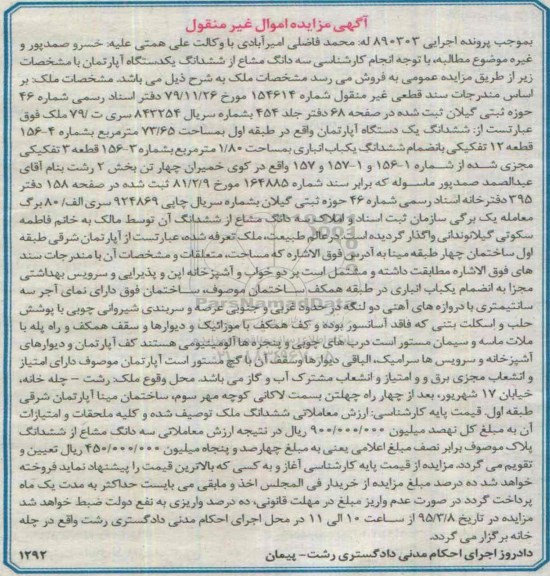 آگهی مزایده اموال غیر منقول
بموجب پرونده اجرایی ۸۹۰۳۰۳ له: محمد فاضلی امیرآبادی با وکالت علی همتی علیه: خسرو صمدپور و
غیره موضوع مطالبه، با توجه انجام کارشناسی سه دانگ مشاع از ششدانگ یکدستگاه آپارتمان با مشخصات
زیر از طریق مزایده عمومی به فروش می رسد مشخصات ملک به شرح ذیل می باشد. مشخصات ملک: بر
اساس مندرجات سند قطعی غیر منقول شماره ۱۵۴۶۱۴ مورخ ۷۹/۱۱/۲۶ دفتر اسناد رسمی شماره ۴۶
حوزه ثبتی گیلان ثبت شده در صفحه ۶۸ دفتر جلد ۴۵۴ بشماره سریال ۸۴۳۲۵۴ سری ت /۷۹ ملک فوق
عبارتست از: ششدانگ یک دستگاه آپارتمان واقع در طبقه اول بمساحت ۷۳/۶۵ مترمربع بشماره ۴-۱۵۶
قطعه ۱۲ تفکیکی بانضمام ششدانگ یکباب انباری بمساحت ۱/۸۰ مترمربع بشماره ۳-۱۵۶ قطعه ۳ تفکیکی
مجزی شده از شماره ۱-۱۵۶ و ۱-۱۵۷ و ۱۵۷ واقع در کوی خمیران چهار تن بخش ۲ رشت بنام آقای
عبدالصمد صمدپور ماسوله که برابر سند شماره ۱۶۴۸۸۵ مورخ ۸۱/۲/۹ ثبت شده در صفحه ۱۵۸ دفتر
۳۹۵ دفترخانه اسناد رسمی شماره ۴۶ حوزه ثبتی گیلان بشماره سریال چاپی ۹۲۴۸۶۹ سری الف/ ۸۰ برگ
معامله یک برگی سازمان ثبت اسناد و املاک سه دانگ مشاع از ششدانگ آن توسط مالک به خانم فاطمه
سکوتی گیلانوندانی واگذار گردیده است. در عالم طبیعت، ملک تعرفه شده، عبارتست از آپارتمان شرقی طبقه
اول ساختمان چهار طبقه مینا به آدرس فوق الاشاره که مساحت، متعلقات و مشخصات آن با مندرجات سند
های فوق الاشاره مطابقت داشته و مشتمل است بر دو خواب و آشپزخانه اپن و پذیرایی و سرویس بهداشتی
مجزا به انضمام یکباب انباری در طبقه همکف ساختمان موصوف، ساختمان فوق دارای نمای آجر سه
سانتیمتری با دروازه های آهنی دو لنگه در حدود غربی و جنوبی عرصه و سربندی شیروانی چوبی با پوشش
حلب و اسکلت بتنی که فاقد آسانسور بوده و کف همکف با موزائیک و دیوارها و سقف همکف و راه پله با
ملات ماسه و سیمان مستور است درب های چوبی و پنجره ها آلومینیومی هستند کف آپارتمان و دیوارهای
آشپزخانه و سرویس ها سرامیک، الباقی دیوارها و سقف آن با گچ مستور است آپارتمان موصوف دارای امتیاز
و انشعاب مجزی برق و و امتیاز و انشعاب مشترک آب و گاز می باشد. محل وقوع ملک: رشت - چله خانه،
خیابان ۱۷ شهریور، بعد از چهار راه چهلتن بسمت لاکانی کوچه مهر سوم، ساختمان مینا آپارتمان شرقی
طبقه اول. قیمت پایه کارشناسی: ارزش معاملاتی ششدانگ ملک توصیف شده و کلیه ملحقات و امتیازات
آن به مبلغ کل نهصد میلیون ۹۰۰/۰۰۰/۰۰۰ ریال در نتیجه ارزش معاملاتی سه دانگ مشاع از ششدانگ
پلاک موصوف برابر نصف مبلغ اعلامی یعنی به مبلغ چهارصد و پنجاه میلیون ۴۵۰/۰۰۰/۰۰۰ ریال تعیین و
تقویم می گردد. مزایده از قیمت پایه کارشناسی آغاز و به کسی که بالاترین قیمت را پیشنهاد نماید فروخته
خواهد شد ده درصد مبلغ مزایده از خریدار فی المجلس اخذ و مابقی می بایست حداکثر به مدت یک ماه
پرداخت گردد در صورت عدم واریز مبلغ در مهلت قانونی، ده درصد واریزی به نفع دولت ضبط خواهد شد
مزایده در تاریخ ۹۵/۳/۸ از ساعت ۱۰ الی ۱۱ در محل اجرای احکام مدنی دادگستری رشت واقع در چله
خانه برگزار می گردد.
دادورز اجرای احکام مدنی دادگستری رشت- پیمان ۱۲۹۲
ParsNamadData